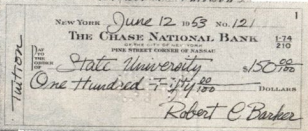 NEW YORK June 12 1953 No. 121
THE CHASE NATIONAL BANK 1-74
OF THE CITY OF NEW YORK 210
PINE STREET CORNER OF NASSAU
PAY TO THE ORDER OF State University $150 00/100
One Hundred Fifty 00/100 DOLLARS
Robert C Barker
Tuition